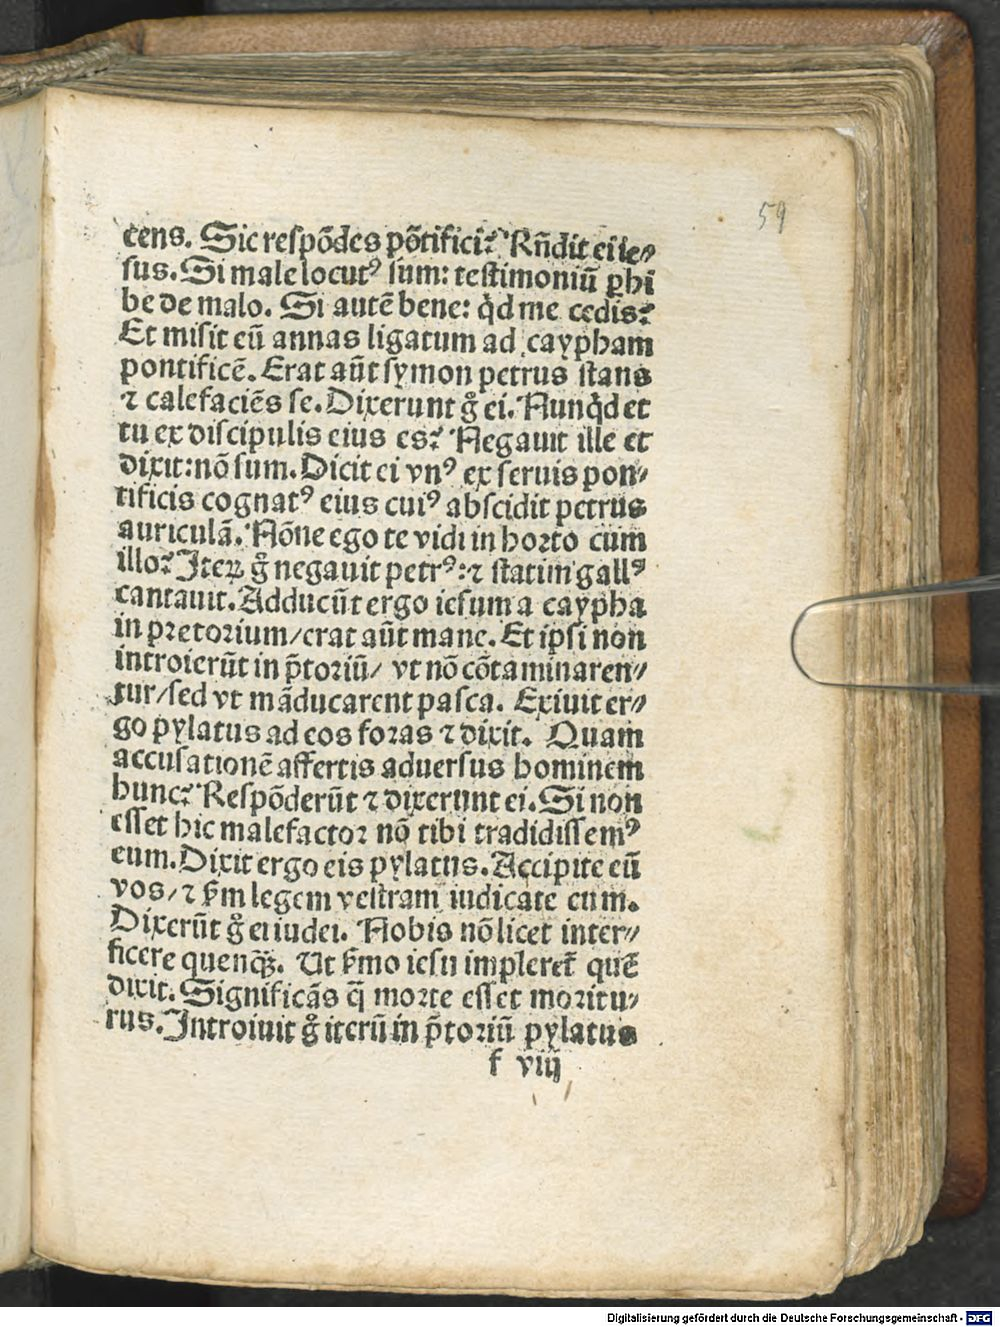 59
cens. Sic respõdes põtifici? Rñdit ei ie⸗
sus. Si male locutꝰ sum: testimoniũ ꝑhi
be de malo. Si autẽ bene: qͥd me cedis?
Et misit eũ annas ligatum ad caypham
pontificẽ. Erat aũt symon petrus stans
⁊ calefaciẽs se. Dixerunt gͦ ei. Nunqͥd et
tu ex discipulis eius es? Negauit ille et
dixit: nõ sum. Dicit ei vnꝰ ex seruis pon⸗
tificis cognatꝰ eius cuiꝰ abscidit petrus
auriculã. Nõne ego te vidi in horto cum
illo? Iteꝝ gͦ negauit petrꝰ: ⁊ statim gallꝰ
cantauit. Adducũt ergo iesum a caypha
in pretorium/ erat aũt mane. Et ipsi non
introierũt in p̃toriũ/ vt nõ cõtaminaren⸗
tur/ sed vt mãducarent pasca. Exiuit er⸗
go pylatus ad eos foras ⁊ dixit. Quam
accusationẽ affertis aduersus hominem
hunc? Respõderũt ⁊ dixerunt ei. Si non
esset hic malefactor nõ tibi tradidissemꝰ
eum. Dixit ergo eis pylatus. Accipite eũ
vos/ ⁊ ẜm legem vestram iudicate eum.
Dixerũt gͦ ei iudei. Nobis nõ licet inter⸗
ficere quenqꝫ. Ut ẜmo iesu impleret̃ quẽ
dixit. Significãs q̃ morte esset moritu⸗
rus. Introiuit gͦ iterũ in p̃toriũ pylatus
f viij
Digitalisierung gefördert durch die Deutsche Forschungsgemeinschaft - DFG